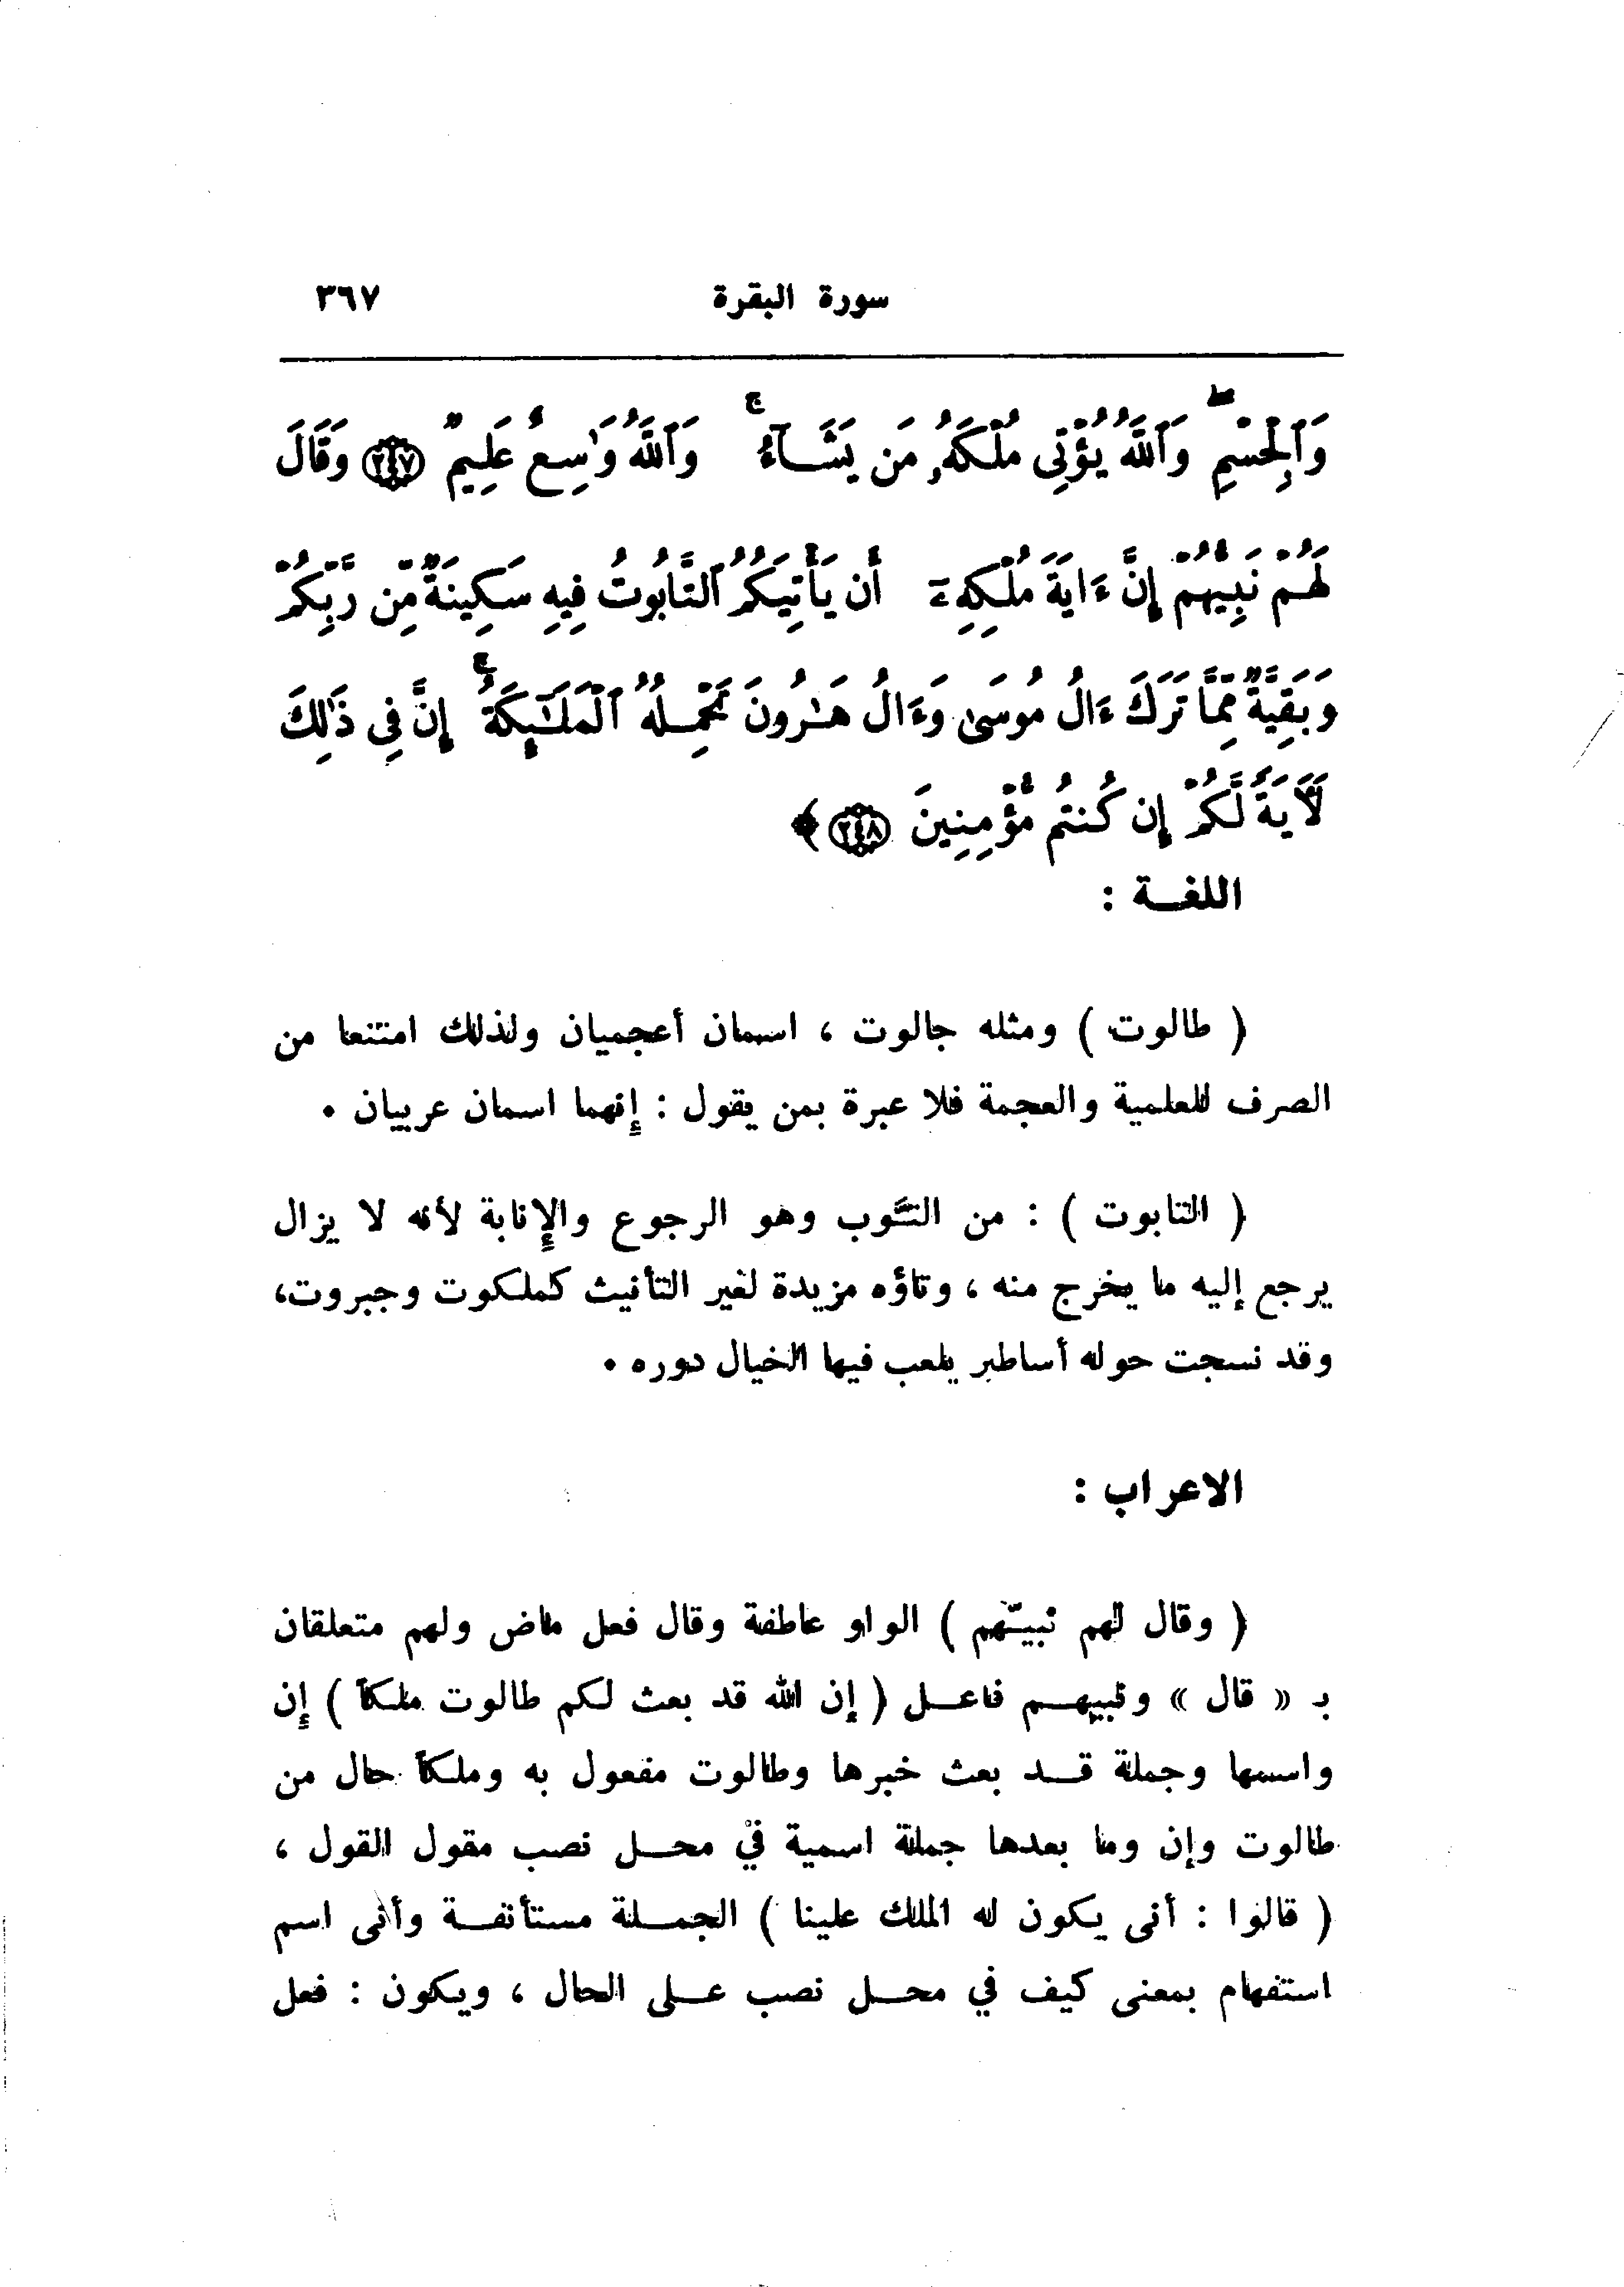 سورة البقرة ٣٦٧
وَٱلْجِسْمِ ۖ وَٱللَّهُ يُؤْتِى مُلْكَهُۥ مَن يَشَآءُ ۚ وَٱللَّهُ وَٰسِعٌ عَلِيمٌ ﴿٢٤٧﴾ وَقَالَ
لَهُمْ نَبِيُّهُمْ إِنَّ ءَايَةَ مُلْكِهِۦٓ أَن يَأْتِيَكُمُ ٱلتَّابُوتُ فِيهِ سَكِينَةٌ مِّن رَّبِّكُمْ
وَبَقِيَّةٌ مِّمَّا تَرَكَ ءَالُ مُوسَىٰ وَءَالُ هَٰرُونَ تَحْمِلُهُ ٱلْمَلَٰٓئِكَةُ ۚ إِنَّ فِى ذَٰلِكَ
لَأٓيَةً لَّكُمْ إِن كُنتُم مُّؤْمِنِينَ ﴿٢٤٨﴾ ﴾
اللغــة :
( طالوت ) ومثله جالوت ، اسمان أعجميان ولذلك امتنعا من
الصرف للعلمية والعجمة فلا عبرة بمن يقول : إنهما اسمان عربيان .
( التابوت ) : من التَّوب وهو الرجوع والإنابة لأنه لا يزال
يرجع إليه ما يخرج منه ، وتاؤه مزيدة لغير التأنيث كملكوت وجبروت،
وقد نسجت حوله أساطير يلعب فيها الخيال دوره .
الاعراب :
( وقال لهم نبيّهم ) الواو عاطفة وقال فعل ماض ولهم متعلقان
بـ « قال » ونبيهــم فاعــل ( إن الله قد بعث لكم طالوت ملكاً ) إن
واسمها وجملة قــد بعث خبرها وطالوت مفعول به وملكاً حال من
طالوت وإن وما بعدها جملة اسمية في محــل نصب مقول القول ،
( قالوا : أنى يكون له الملك علينا ) الجمــلة مستأنفــة وأنى اسم
استفهام بمعنى كيف في محــل نصب عــلى الحال ، ويكون : فعل